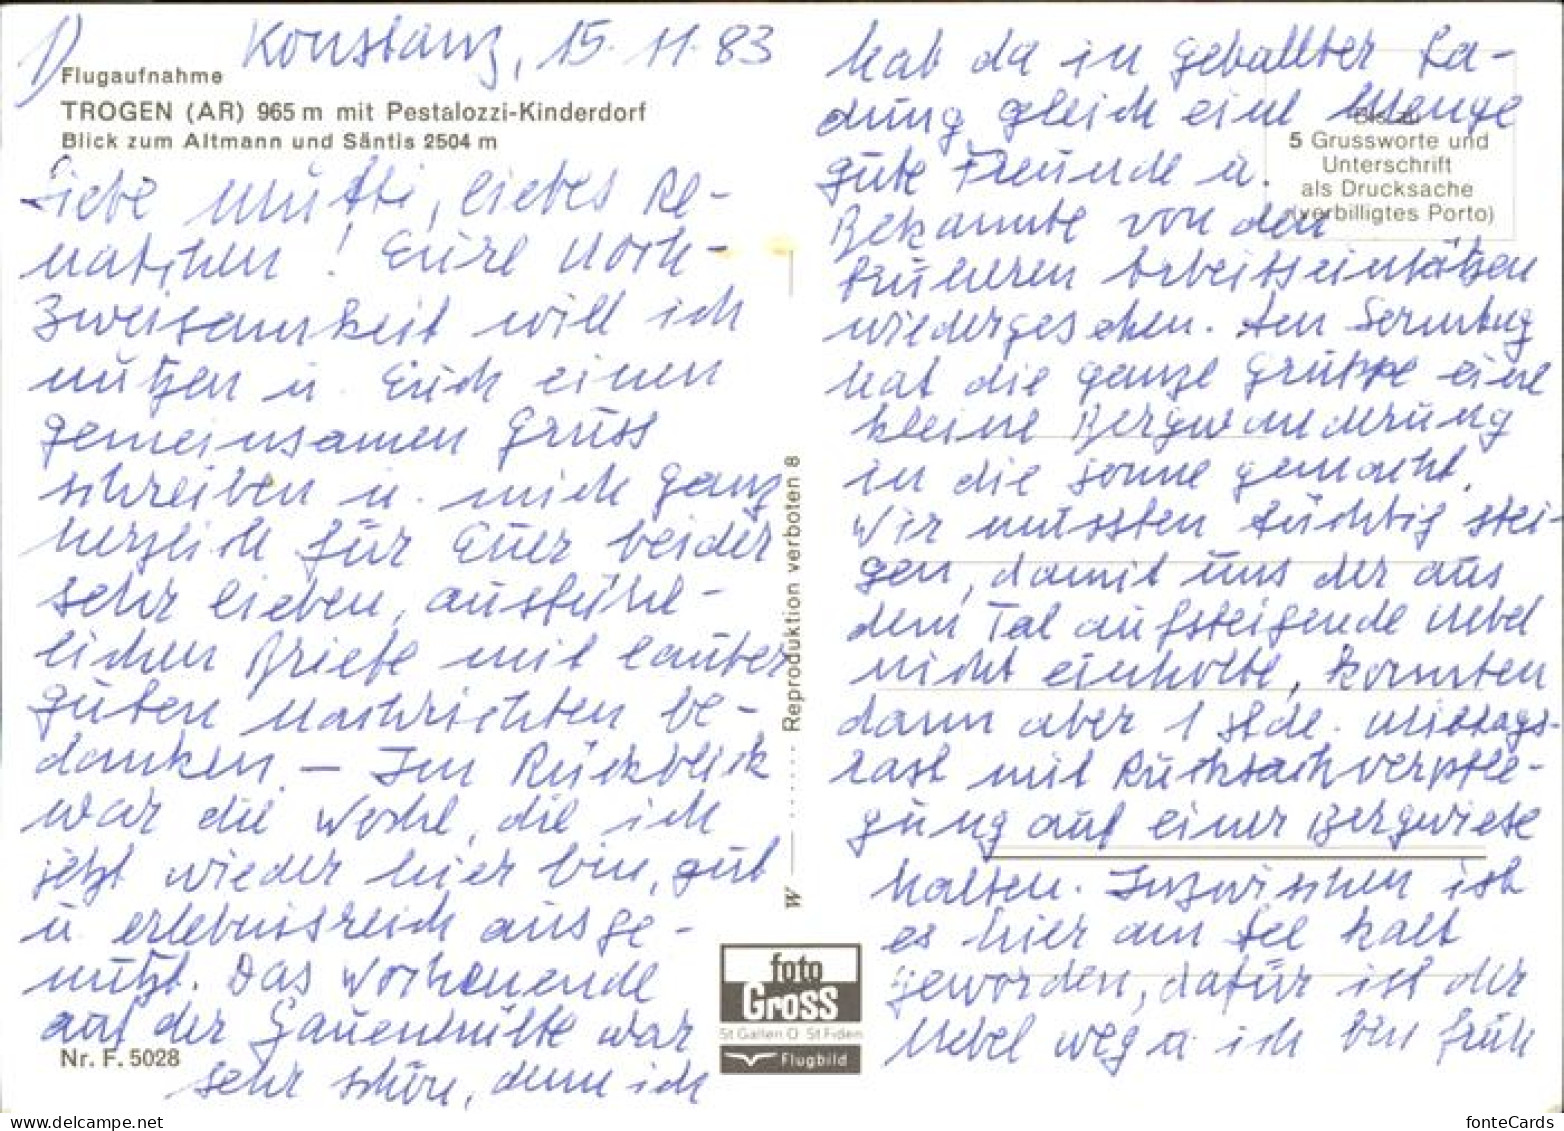 1)
Konstanz, 15. 11. 83
Flugaufnahme
TROGEN (AR) 965 m mit Pestalozzi-Kinderdorf
Blick zum Altmann und Säntis 2504 m
Liebe Mutti, liebes Re-
natchen! Eure Noch-
Zweisamkeit will ich
nutzen u. Euch einen
gemeinsamen Gruss
schreiben u. mich ganz
herzlich für Euer beider
sehr lieben, ausführ-
lichen Briefe mit lauter
guten Nachrichten be-
danken. — Im Rückblick
war die Woche, die ich
jetzt wieder hier bin, gut
u. erlebnisreich ausge-
nutzt. Das Wochenende
auf der Gauenhütte war
sehr schön, denn ich
Nr. F. 5028
W — ..... Reproduktion verboten 8
foto
Gross
St.Gallen O St.Fiden
Flugbild
Bis zu
5 Grussworte und
Unterschrift
als Drucksache
(verbilligtes Porto)
hab da in geballter La-
dung gleich eine Menge
gute Freunde u.
Bekannte von den
früheren Arbeitseinsätzen
wiedergesehen. Am Sonntag
hat die ganze Gruppe eine
kleine Bergwanderung
in die Sonne gemacht.
Wir mussten tüchtig stei-
gen, damit uns der aus
dem Tal aufsteigende Nebel
nicht einholte, konnten
dann aber 1 Stde. Mittags-
rast mit Rucksackverpfle-
gung auf einer Bergwiese
halten. Inzwischen ist
es hier am See kalt
geworden, dafür ist der
Nebel weg u. ich bin früh